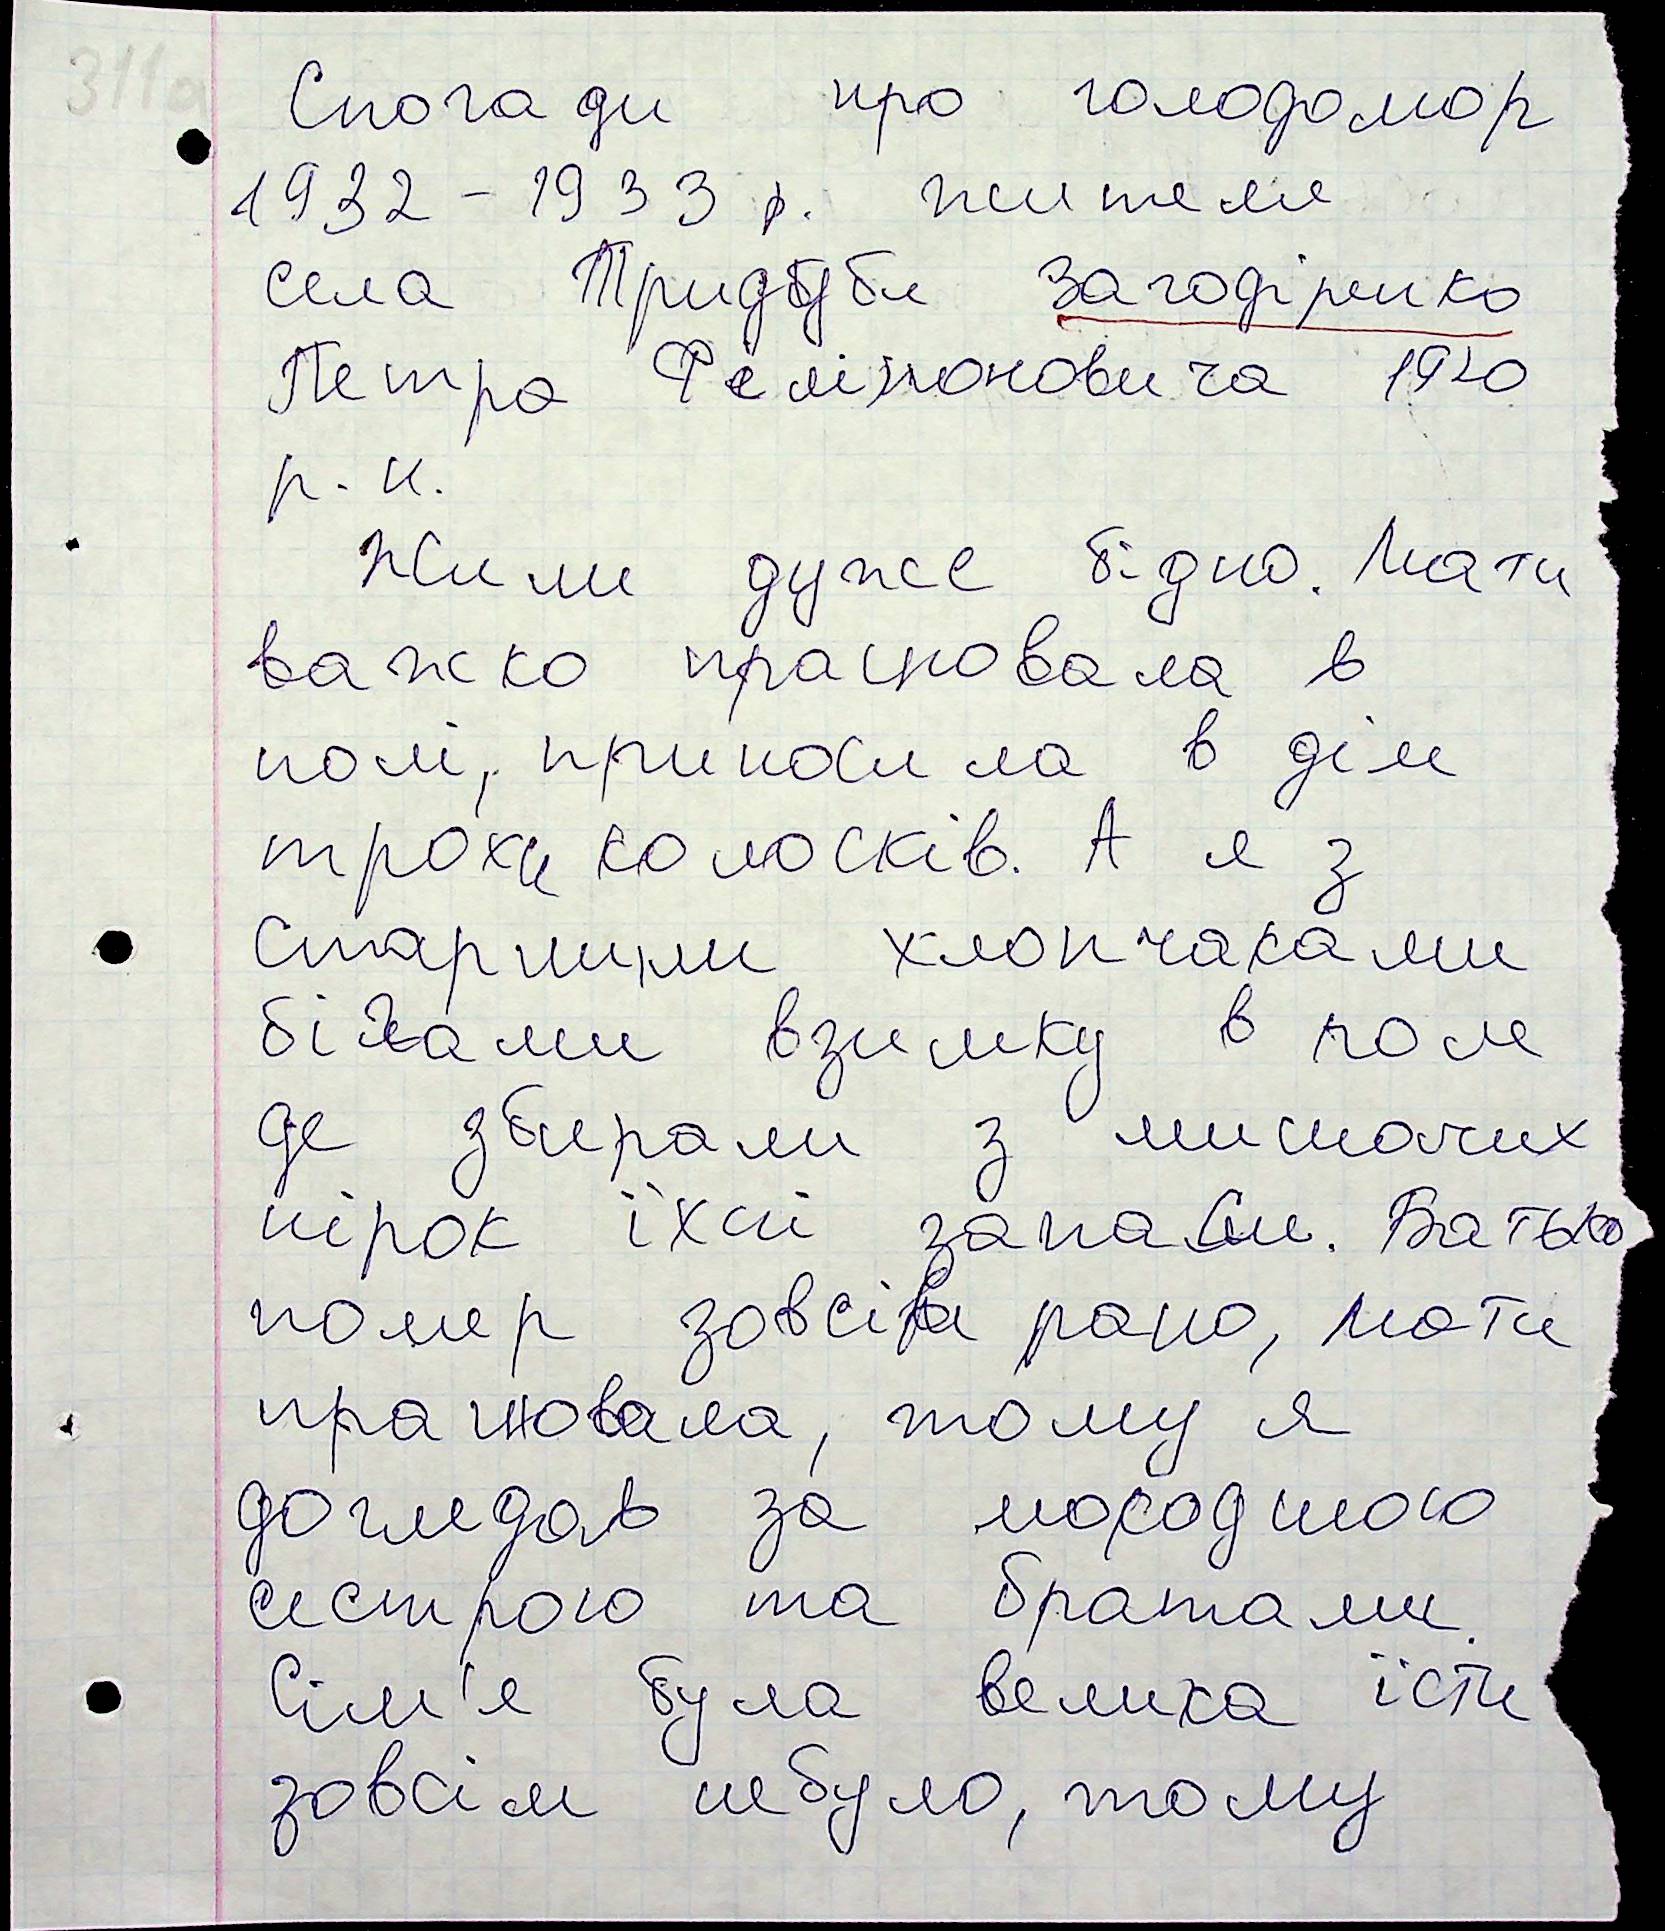 311а
Спогади про голодомор
1932-1933 р. жителя
села Тридуби Загодіренко
Петра Філімоновича 1920
р. н.
Жили дуже бідно. Мати
важко працювала в
полі, приносила в дім
трохи колосків. А я з
старшими хлопчаками
бігали взимку в поле
де збирали з мишачих
нірок їхні запаси. Батько
помер зовсім рано, мати
працювала, тому я
доглядав за молодшою
сестрою та братами.
Сім'я була велика їсти
зовсім небуло, тому